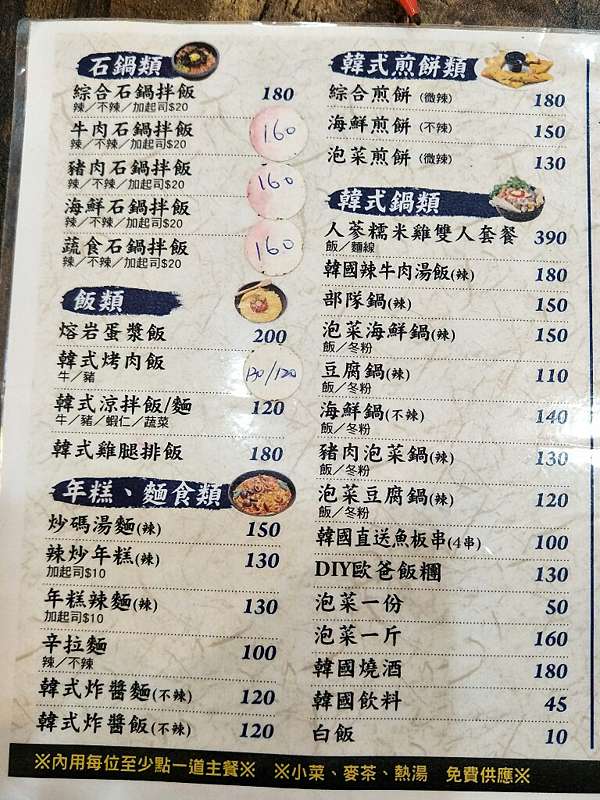 石鍋類
綜合石鍋拌飯 180
辣／不辣／加起司$20
牛肉石鍋拌飯 160
辣／不辣／加起司$20
豬肉石鍋拌飯 160
辣／不辣／加起司$20
海鮮石鍋拌飯
辣／不辣／加起司$20
蔬食石鍋拌飯 160
辣／不辣／加起司$20
飯類
熔岩蛋漿飯 200
韓式烤肉飯 130/120
牛／豬
韓式涼拌飯/麵 120
牛／豬／蝦仁／蔬菜
韓式雞腿排飯 180
年糕、麵食類
炒碼湯麵(辣) 150
辣炒年糕(辣) 130
加起司$10
年糕辣麵(辣) 130
加起司$10
辛拉麵 100
辣／不辣
韓式炸醬麵(不辣) 120
韓式炸醬飯(不辣) 120
韓式煎餅類
綜合煎餅（微辣） 180
海鮮煎餅（不辣） 150
泡菜煎餅（微辣） 130
韓式鍋類
人蔘糯米雞雙人套餐 390
飯／麵線
韓國辣牛肉湯飯(辣) 180
部隊鍋(辣) 150
泡菜海鮮鍋(辣) 150
飯／冬粉
豆腐鍋(辣) 110
飯／冬粉
海鮮鍋(不辣) 140
飯／冬粉
豬肉泡菜鍋(辣) 130
飯／冬粉
泡菜豆腐鍋(辣) 120
飯／冬粉
韓國直送魚板串(4串) 100
DIY歐爸飯糰 130
泡菜一份 50
泡菜一斤 160
韓國燒酒 180
韓國飲料 45
白飯 10
※內用每位至少點一道主餐※ ※小菜、麥茶、熱湯 免費供應※